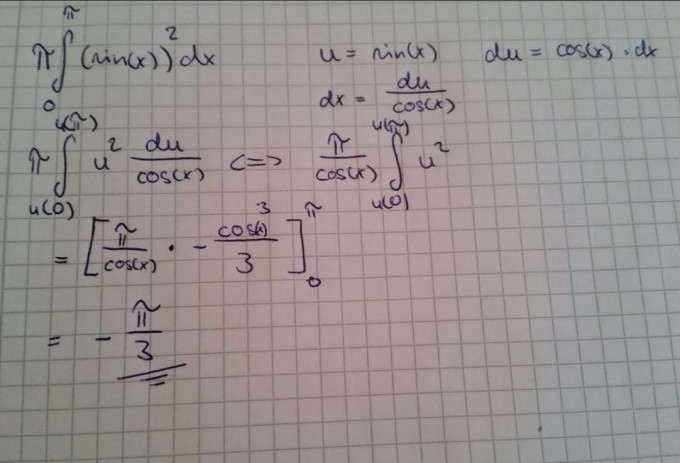 π ∫₀^π (sin(x))² dx    u = sin(x)    du = cos(x) · dx
dx = du/cos(x)
π ∫_{u(0)}^{u(π)} u² du/cos(x) <=> π/cos(x) ∫_{u(0)}^{u(π)} u²
= [π/cos(x) · - cos(x)³/3]₀^π
= - π/3